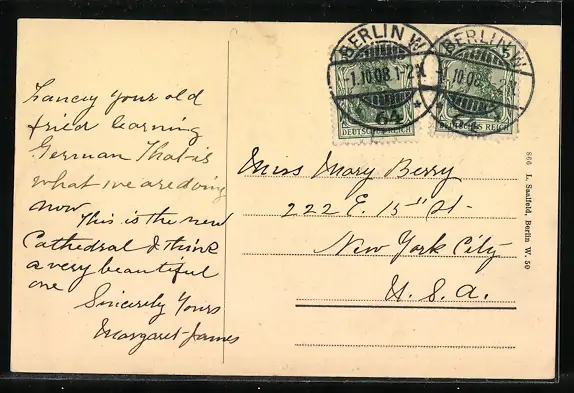 Fancy your old
fried learning
German That is
what we are doing
now.
This is the new
Cathedral I think
a very beautiful
one
Sincerely Yours
Margaret James
BERLIN W
1.10.08.1-2
64
DEUTSCHES REICH
BERLIN W
.10.08
64
5
REICH
Miss Mary Berry
222 E. 15" St.
New York City
U. S. A.
866 L. Saalfeld, Berlin W. 50